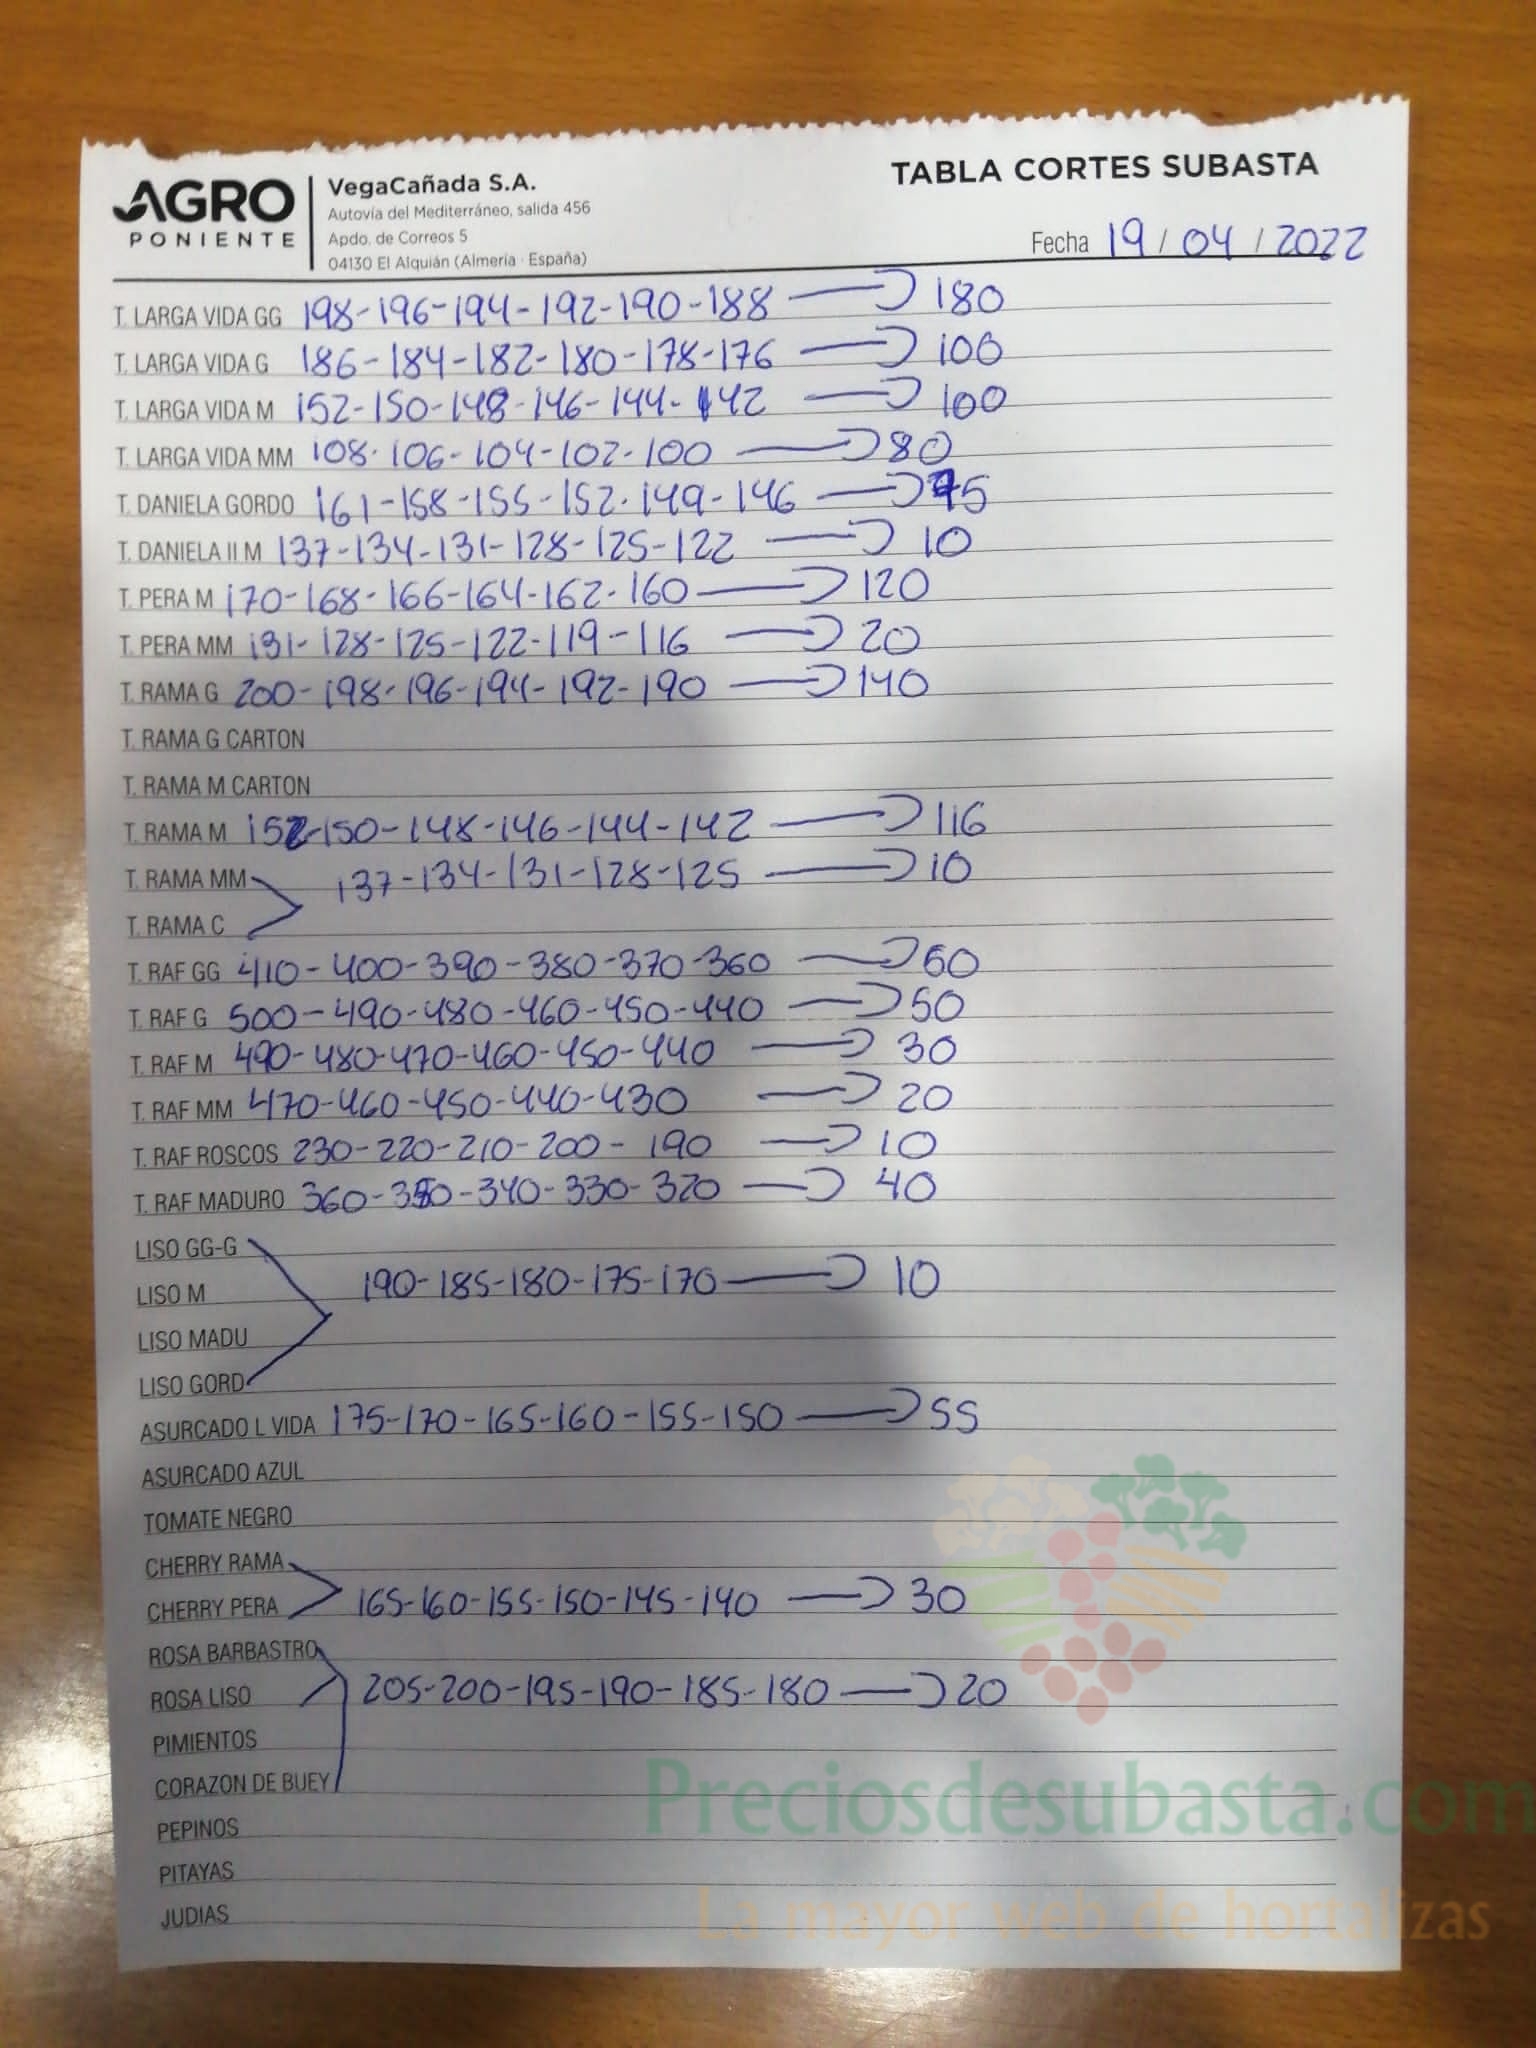 AGRO
PONIENTE
VegaCañada S.A.
Autovía del Mediterráneo, salida 456
Apdo. de Correos 5
04130 El Alquián (Almería · España)
TABLA CORTES SUBASTA
Fecha 19 / 04 / 2022
T. LARGA VIDA GG 198-196-194-192-190-188 180
T. LARGA VIDA G 186-184-182-180-178-176 100
T. LARGA VIDA M 152-150-148-146-144-142 100
T. LARGA VIDA MM 108-106-104-102-100 80
T. DANIELA GORDO 161-158-155-152-149-146 75
T. DANIELA II M 137-134-131-128-125-122 10
T. PERA M 170-168-166-164-162-160 120
T. PERA MM 131-128-125-122-119-116 20
T. RAMA G 200-198-196-194-192-190 140
T. RAMA G CARTON
T. RAMA M CARTON
T. RAMA M 152-150-148-146-144-142 116
T. RAMA MM 137-134-131-128-125 10
T. RAMA C
T. RAF GG 410-400-390-380-370-360 60
T. RAF G 500-490-480-460-450-440 50
T. RAF M 490-480-470-460-450-440 30
T. RAF MM 470-460-450-440-430 20
T. RAF ROSCOS 230-220-210-200-190 10
T. RAF MADURO 360-350-340-330-320 40
LISO GG-G
LISO M 190-185-180-175-170 10
LISO MADU
LISO GORD
ASURCADO L VIDA 175-170-165-160-155-150 55
ASURCADO AZUL
TOMATE NEGRO
CHERRY RAMA
CHERRY PERA 165-160-155-150-145-140 30
ROSA BARBASTRO
ROSA LISO 205-200-195-190-185-180 20
PIMIENTOS
CORAZON DE BUEY
PEPINOS
PITAYAS
JUDIAS
Preciosdesubasta.com
La mayor web de hortalizas